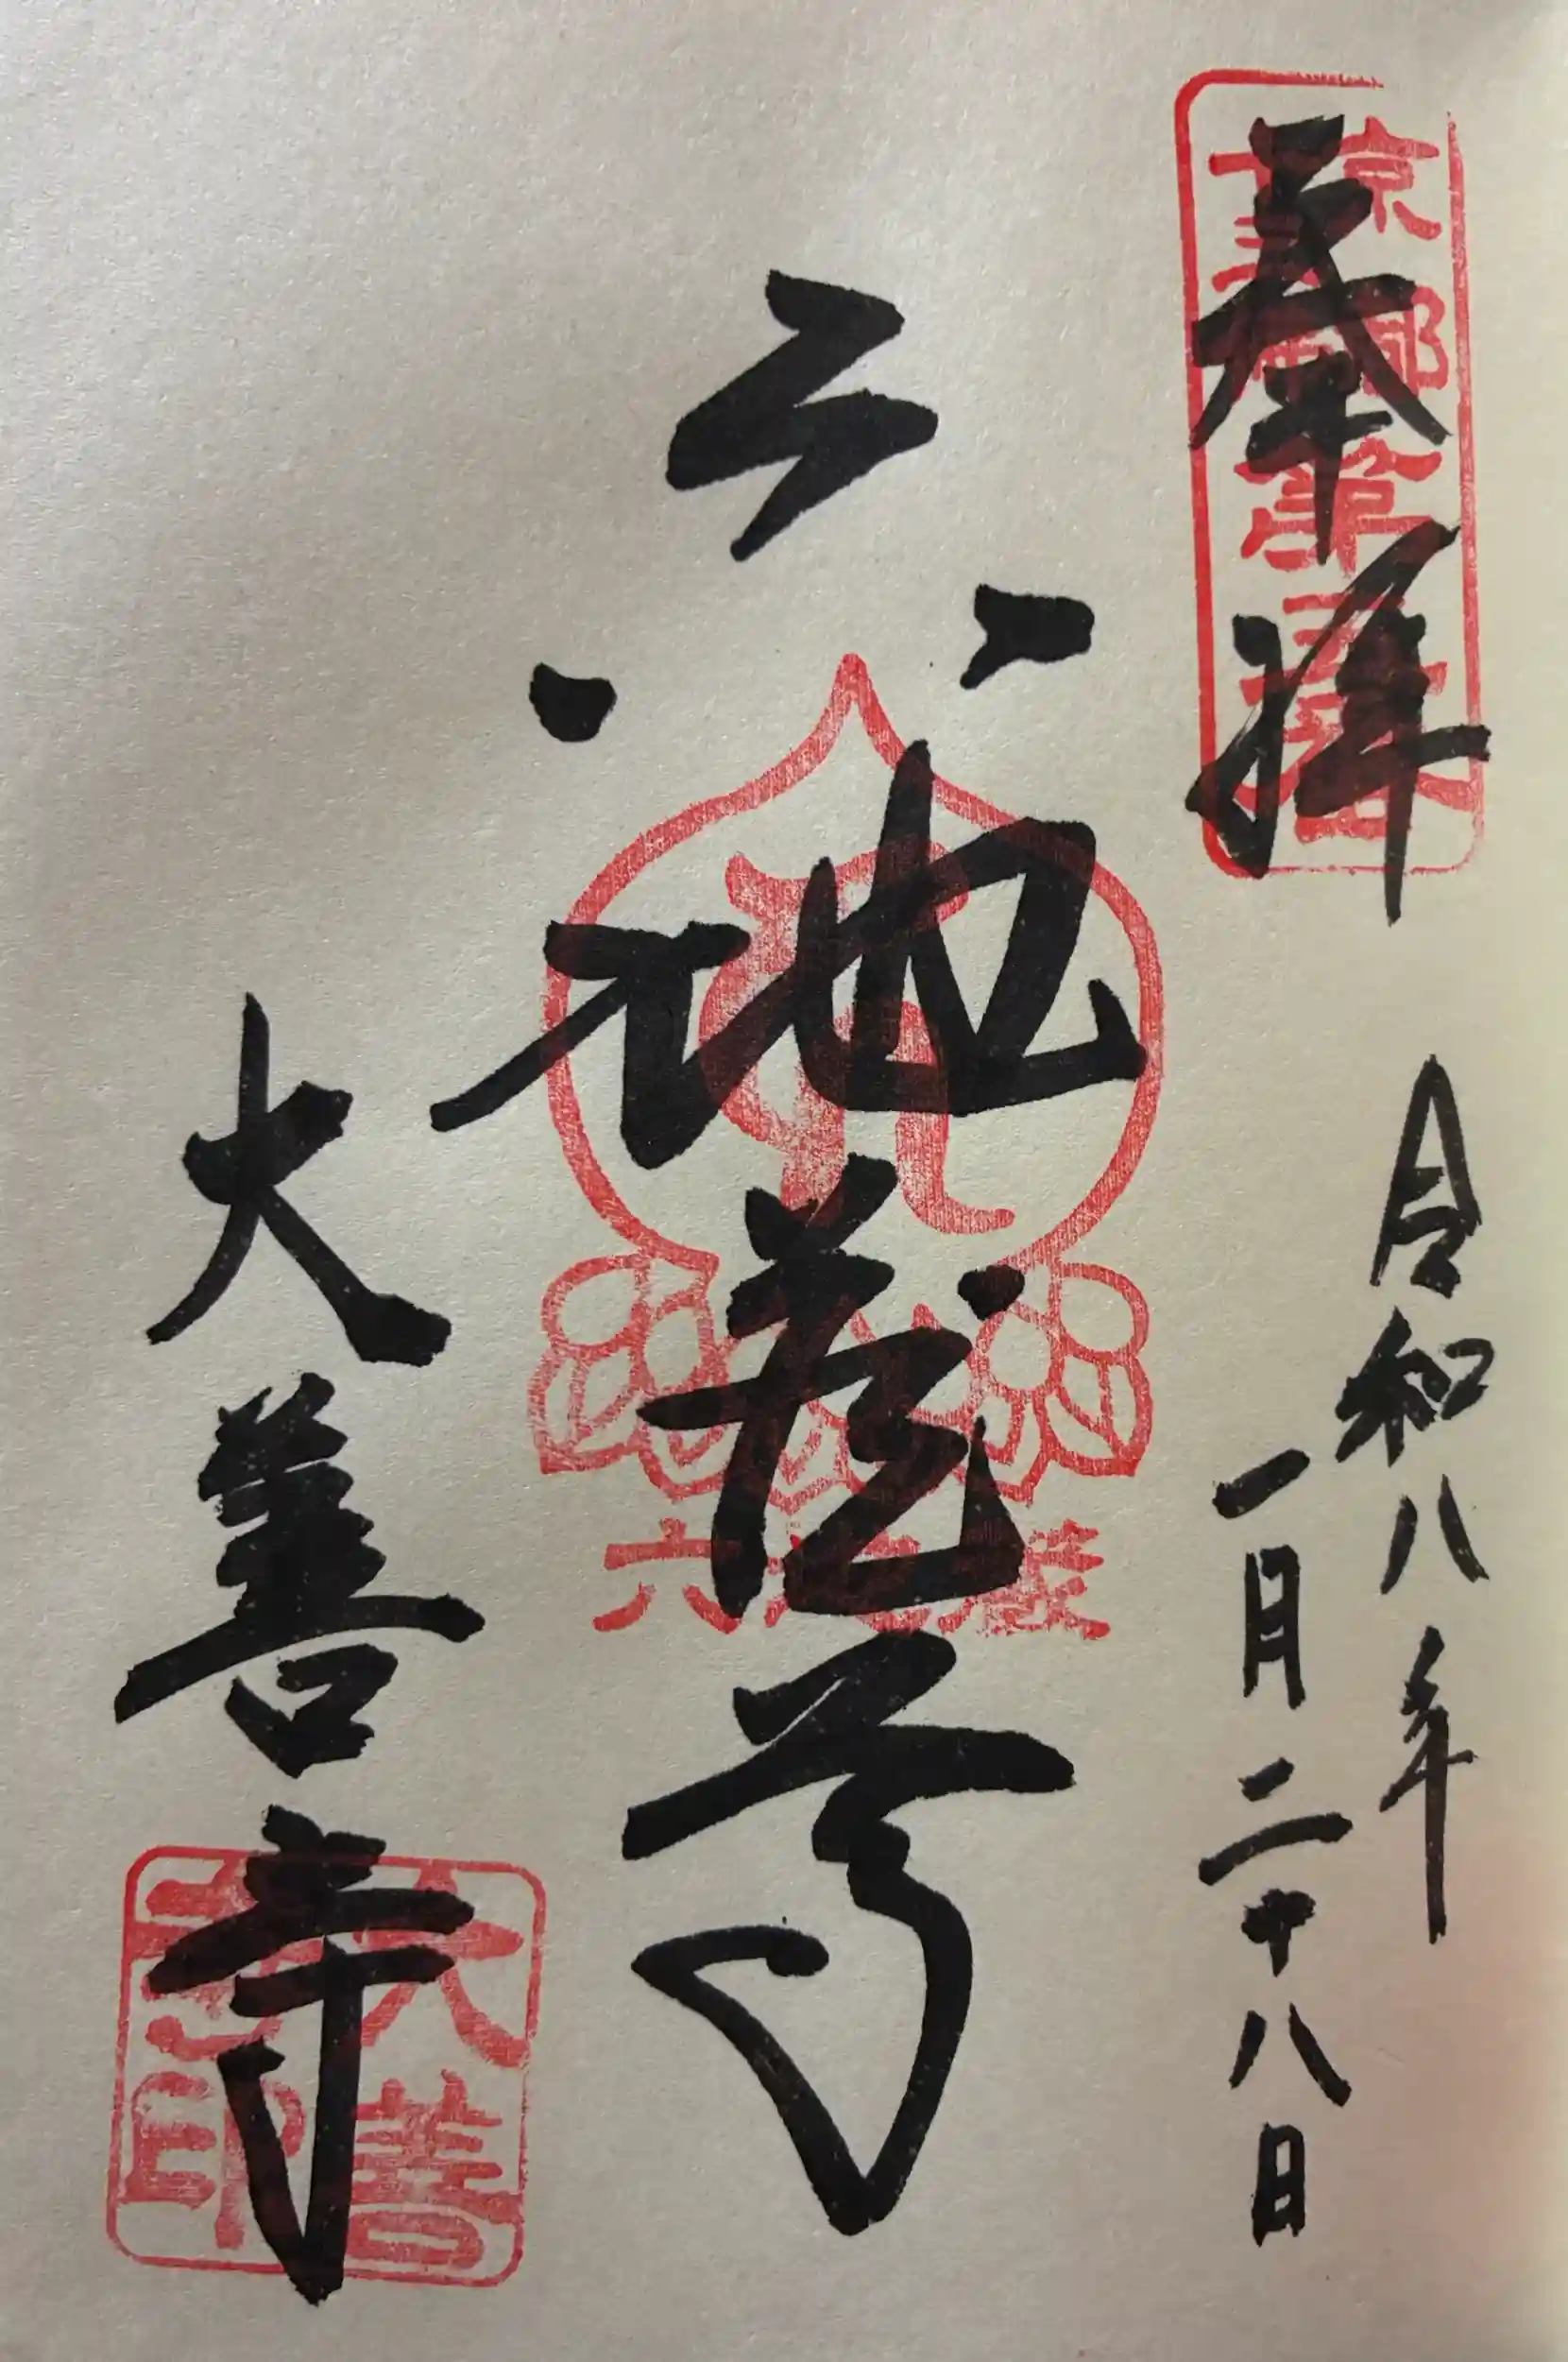 奉拝
令和八年
一月二十八日
六地蔵尊
六地蔵
大善寺
大善
寺印